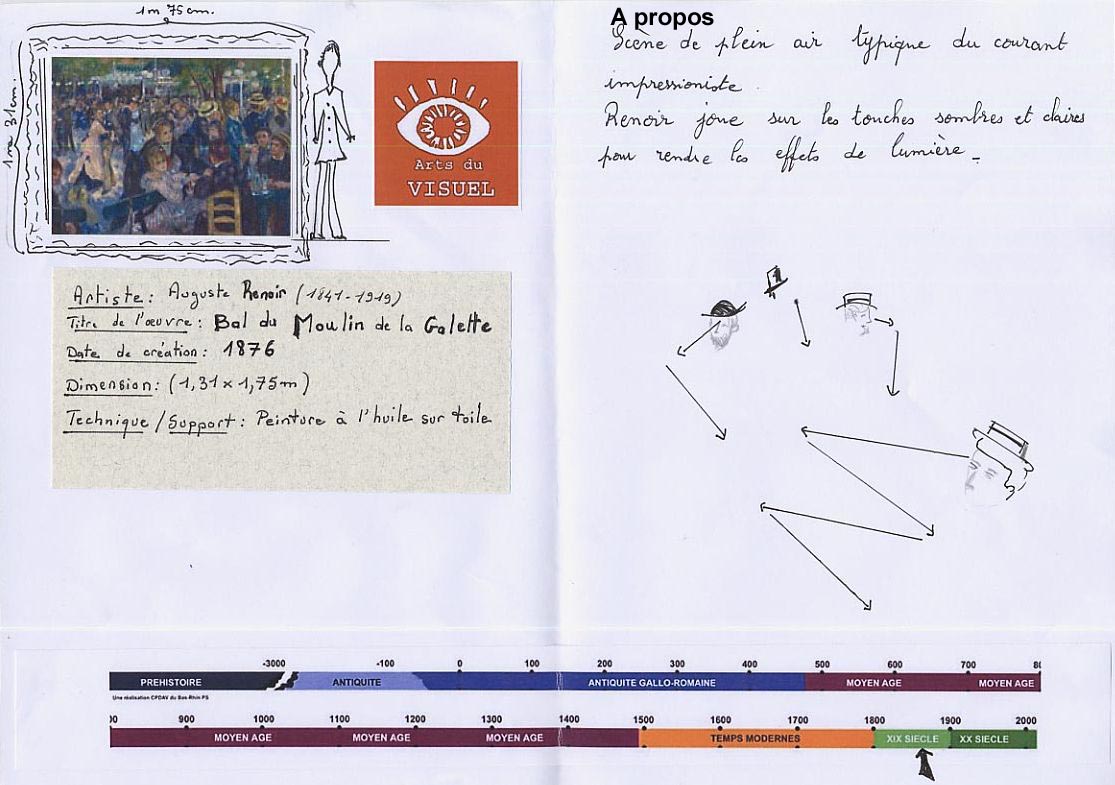 1m 75cm.
1m 31cm.
Arts du
VISUEL
Artiste : Auguste Renoir (1841-1919)
Titre de l'œuvre : Bal du Moulin de la Galette
Date de création : 1876
Dimension : (1,31 x 1,75m)
Technique / Support : Peinture à l'huile sur toile
A propos
Scène de plein air typique du courant
impressioniste.
Renoir joue sur les touches sombres et claires
pour rendre les effets de lumière.
-3000 -100 0 100 200 300 400 500 600 700 80
PREHISTOIRE ANTIQUITE ANTIQUITE GALLO-ROMAINE MOYEN AGE MOYEN AGE
Une réalisation CPDAV du Bas-Rhin PS
00 900 1000 1100 1200 1300 1400 1500 1600 1700 1800 1900 2000
MOYEN AGE MOYEN AGE MOYEN AGE TEMPS MODERNES XIX SIECLE XX SIECLE